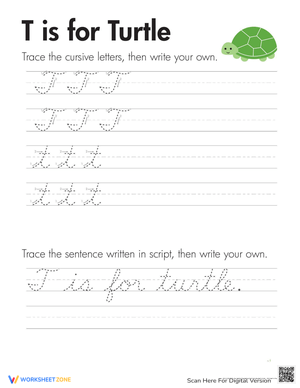 T is for Turtle
Trace the cursive letters, then write your own.
T T T
T T T
t t t
t t t
Trace the sentence written in script, then write your own.
T is for turtle.
WORKSHEETZONE
Scan Here For Digital Version